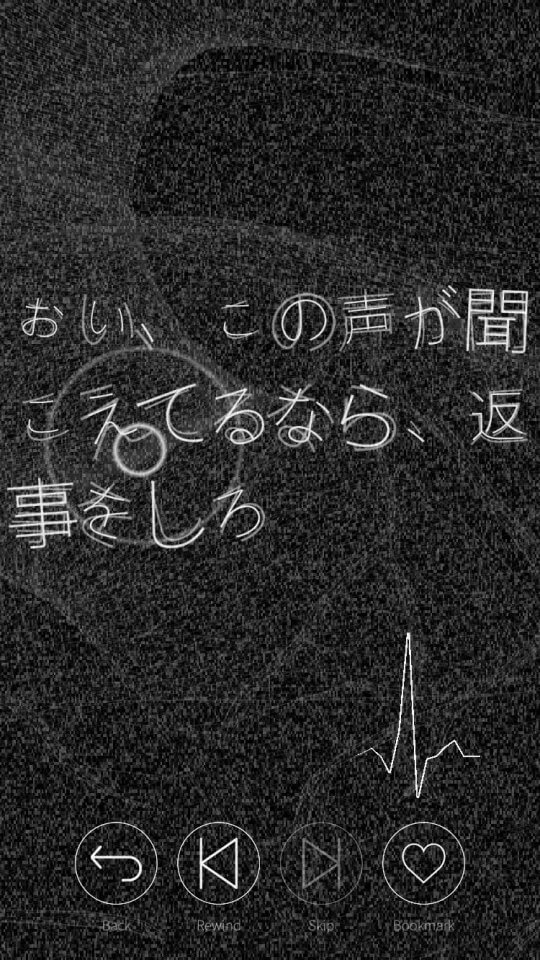 おい、　この声が聞
こえてるなら、返
事をしろ
Back Rewind Skip Bookmark